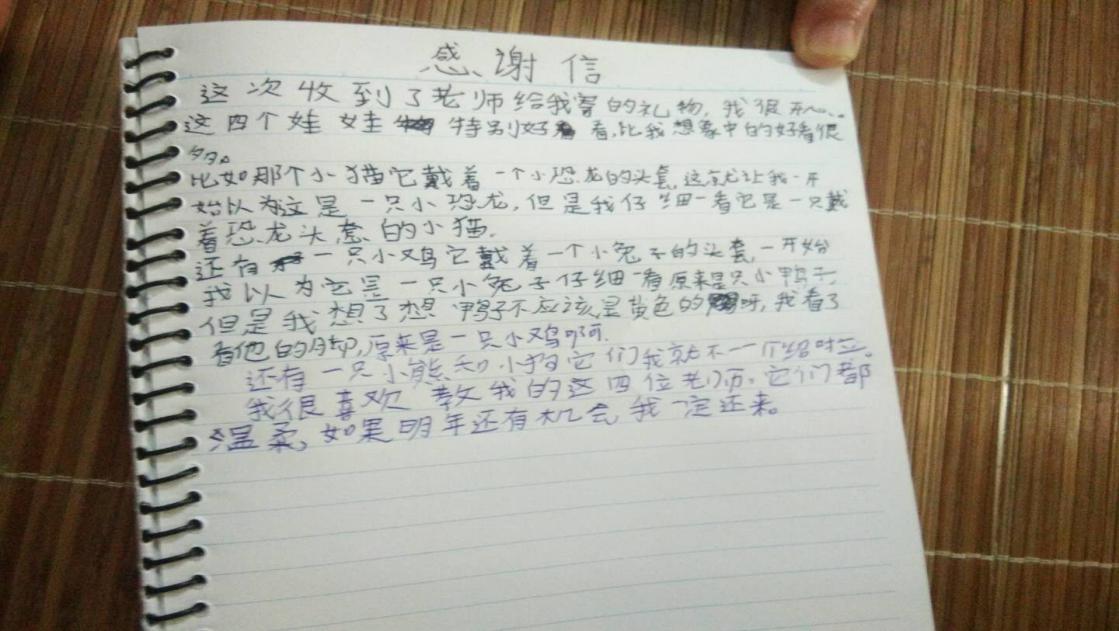 感谢信
这次收到了老师给我寄的礼物,我很开心..
这四个娃娃特别好看,比我想象中的好看很
多多。
比如那个小猫它戴着一个小恐龙的头套,这就让我一开
始以为这是一只小恐龙,但是我仔细一看它是一只戴
着恐龙头套的小猫.
还有一只小鸡它戴着一个小兔子的头套,一开始
我以为它是一只小兔子仔细一看原来是只小鸭子
但是我想了想鸭子不应该是黄色的呀,我看了
看他的脚,原来是一只小鸡啊.
还有一只小熊和小狗它们我就不一个绍时
我很喜欢教我的这四位老师.它们都
温柔,如果明年还有机会我一定还来。